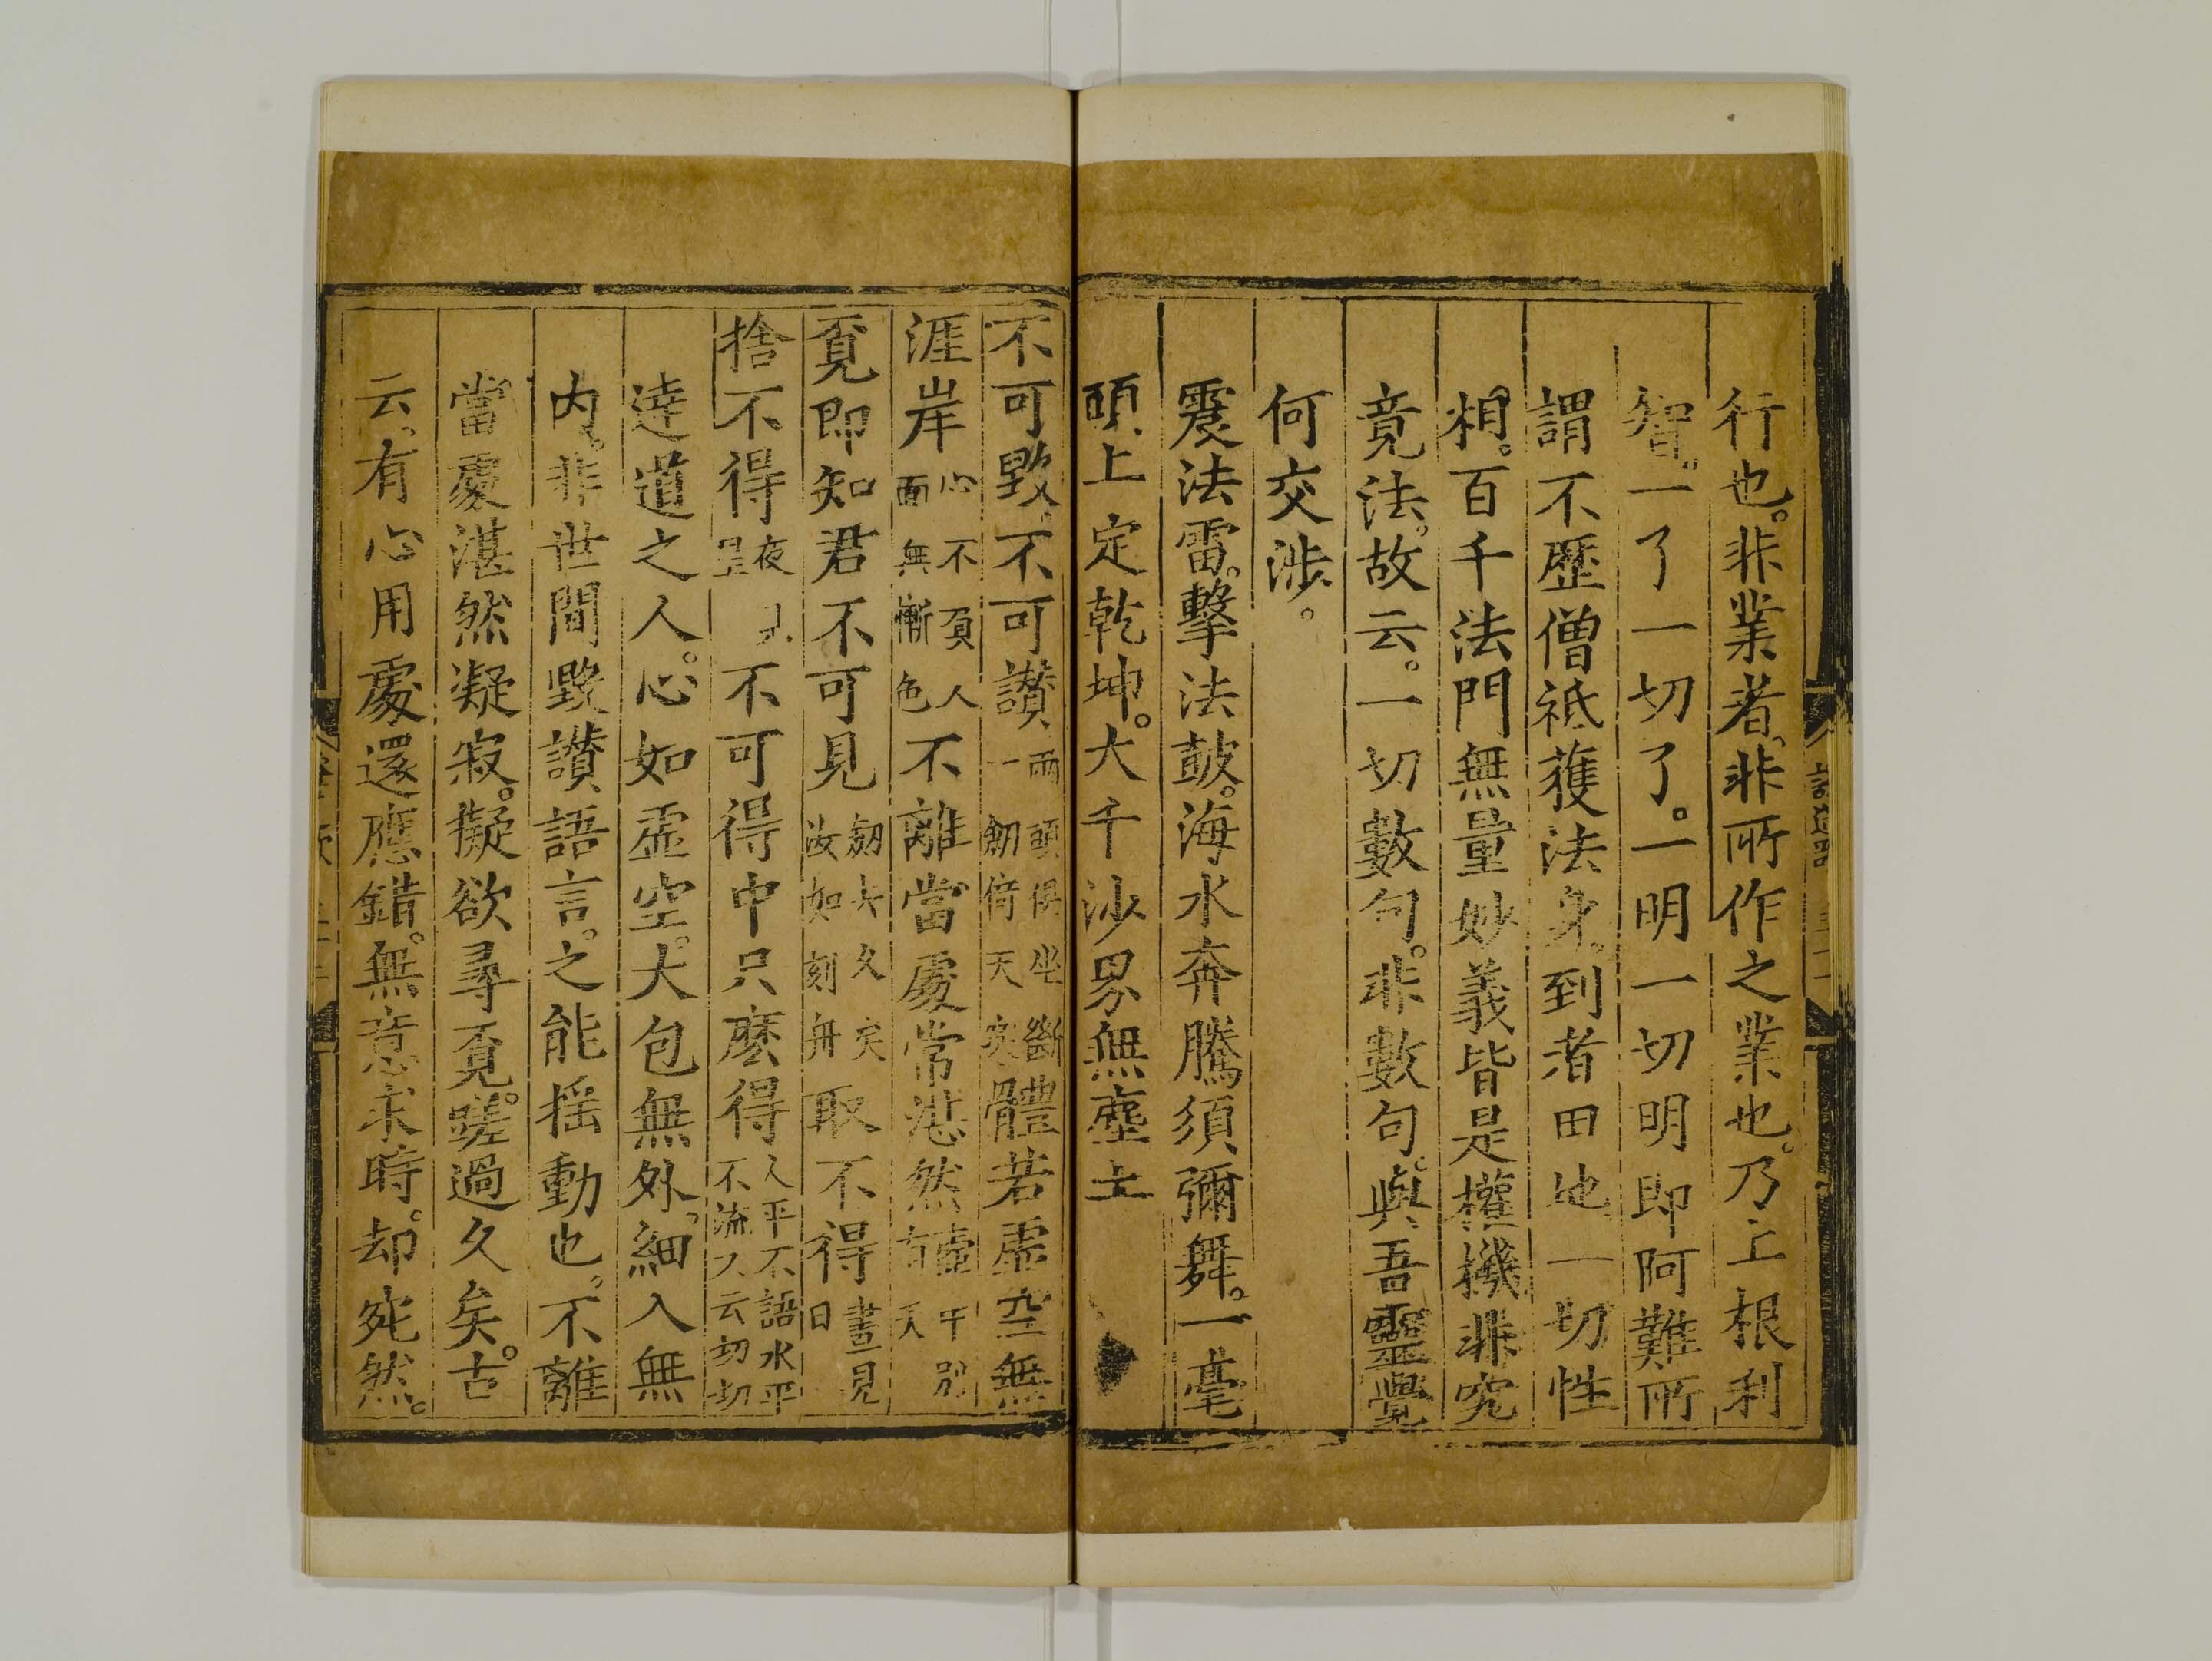 行也。非業者。非所作之業也。乃上根利
智。一了一切了。一明一切明即阿難所
謂不歷僧祗獲法身。到者田地一切性
相。百千法門無量妙義皆是權機非究
竟法。故云。一切數句。非數句。與吾靈覺
何交涉。
震法雷。擊法鼓。海水奔騰須彌舞。一毫
頭上定乾坤。大千沙界無塵土
不可毀。不可讚兩頭俱坐斷一劒倚天寒體若虛空無
涯岸心不負人面無慚色不離當處常湛然壺中別有天
覔即知君不可見劒去久矣汝如刻舟取不得晝見日
捨不得夜見星不可得中只麽得人平不語水平不流又云切切
達道之人。心如虛空。大包無外。細入無
内。非世間毀讚語言。之能揺動也。不離
當處湛然凝寂。擬欲尋覔。蹉過久矣。古
云。有心用處還應錯。無意求時。却宛然。